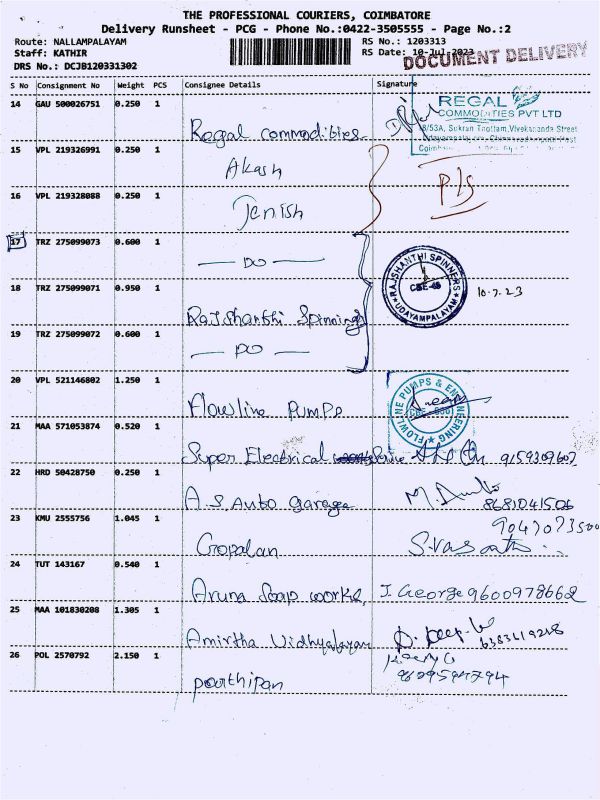 THE PROFESSIONAL COURIERS, COIMBATORE
Delivery Runsheet - PCG - Phone No.:0422-3505555 - Page No.:2
Route: NALLAMPALAYAM
RS No.: 1203313
Staff: KATHIR
RS Date: 10-Jul-2023
DOCUMENT DELIVERY
DRS No.: DCJB120331302
S No Consignment No Weight PCS Consignee Details Signature
14 GAU 500026751 0.250 1
REGAL
COMMODITIES PVT LTD
8/53A, Sukran Thottam, Vivekananda Street
Regal commodities
15 VPL 219326991 0.250 1
Akash
16 VPL 219328088 0.250 1
Jenish
Pls
17 TRZ 275099073 0.600 1
DO
RAJSHANTHI SPINNERS
CBE-45
UDAYAMPALAYAM
10.7.23
18 TRZ 275099071 0.950 1
Rajshanthi Spinnings
19 TRZ 275099072 0.600 1
DO
20 VPL 521146802 1.250 1
Flowline Pumps
FLOWLINE PUMPS & ENGINEERING
21 MAA 571053874 0.520 1
Super Electrical 9159309607
22 HRD 50428750 0.250 1
A.S. Auto garage
8681041506
23 KMU 2555756 1.045 1
Gopalan
S.Vasanth
24 TUT 143167 0.540 1
Aruna Soap works, J. George 9600978662
25 MAA 101830208 1.305 1
Amirtha Vidhyalayam
26 POL 2570792 2.150 1
parthipan